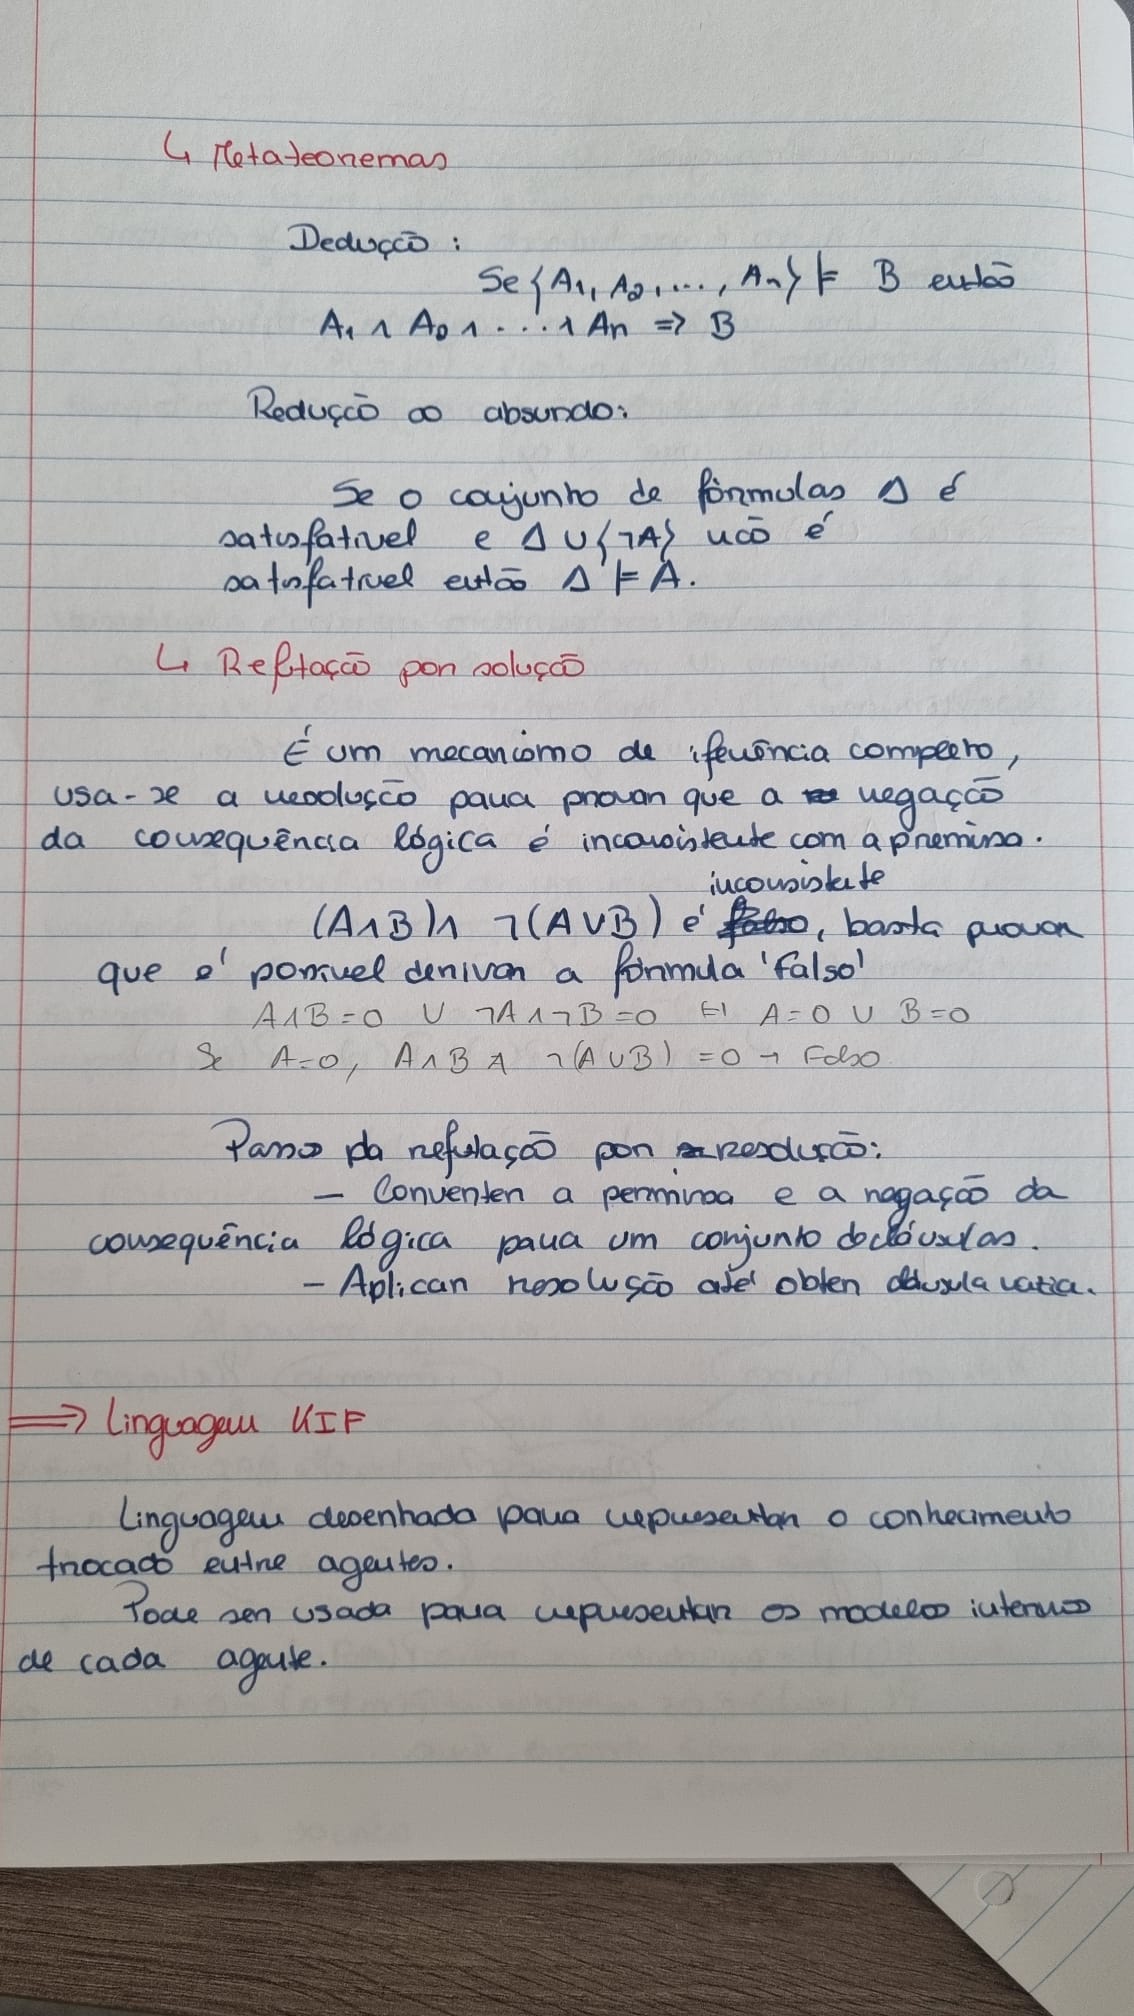 ↳ Metateoremas
Dedução :
Se {A1, A2, ..., An} ⊨ B então
A1 ∧ A2 ∧ ... ∧ An => B
Redução ao absurdo:
Se o conjunto de fórmulas Δ é
satisfatível e Δ ∪ {¬A} não é
satisfatível então Δ ⊨ A.
↳ Reftação por solução
É um mecanismo de iferência completo,
usa-se a resolução para provar que a negação
da consequência lógica é inconsistente com a premissa.
inconsistente
(A∧B)∧ ¬(A∨B) é falso, basta provar
que é possível derivar a fórmula 'Falso'
A∧B=0 ∪ ¬A∧¬B=0 A=0 ∪ B=0
Se A=0, A∧B ∧ ¬(A∪B) =0 → Falso
Passo da refutação por resolução:
- Converter a permissa e a negação da
consequência lógica para um conjunto de cláusulas.
- Aplicar resolução até obter cláusula vazia.
=> Linguagem KIF
Linguagem desenhada para representar o conhecimento
trocado entre agentes.
Pode ser usada para representar os modelos internos
de cada agente.